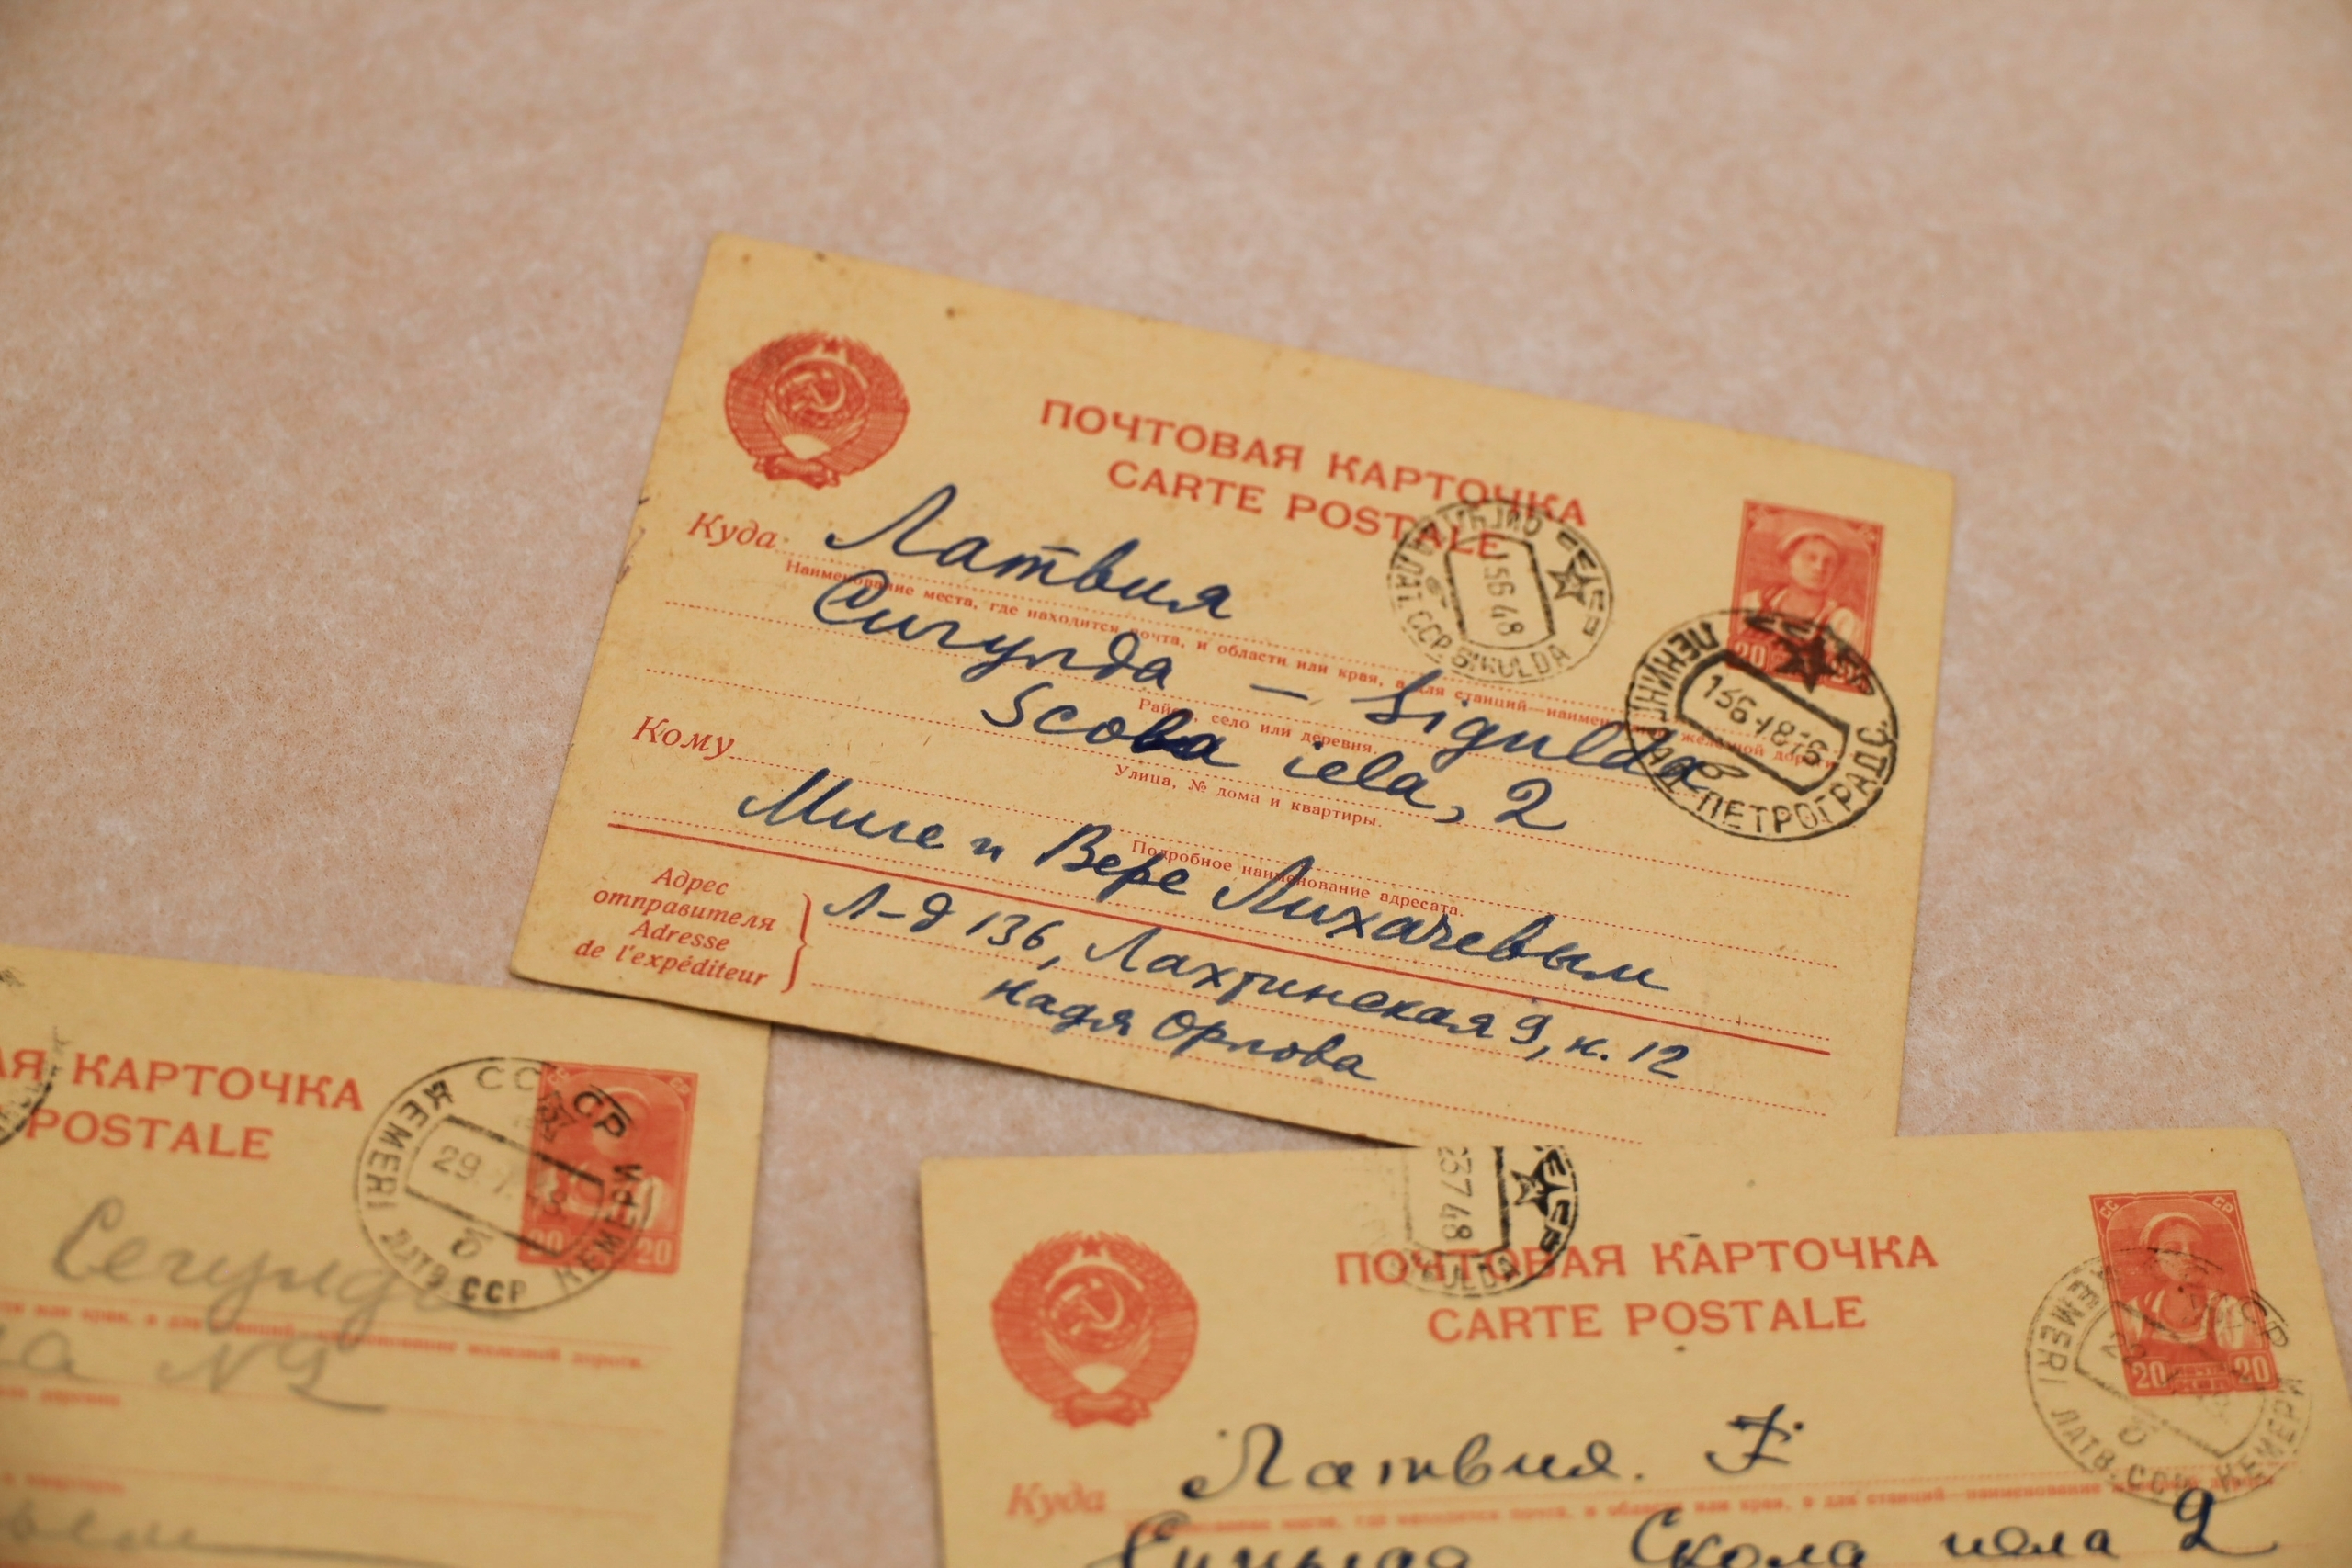 ПОЧТОВАЯ КАРТОЧКА
CARTE POSTALE
Куда Латвия
Наименование места, где находится почта, и области или края, а для станций—наименование железной дороги
Сигулда — Sigulda
Район, село или деревня.
Scola iela, 2
Улица, № дома и квартиры.
Кому
Миле и Вере Лихачевым
Подробное наименование адресата.
Адрес
отправителя
Adresse
de l'expéditeur
Л-д 136, Лахтинская 9, к. 12
Надя Орлова
SIGULDA
ЛАТ ССР
15 6 48
ЛЕНИНГРАД ПЕТРОГРАДС.
13 6 48-6
20
АЯ КАРТОЧКА
POSTALE
СССР КЕМЕРИ
ĶEMERI ЛАТВ. ССР
29
б
20 20
Сегулда
на №2
ПОЧТОВАЯ КАРТОЧКА
CARTE POSTALE
23 7 48
ULDA
СС СР
20 ПОЧТА 20
ĶEMERI ЛАТВ. ССР КЕМЕРИ
б
Куда Латвия.
Скола иела 2